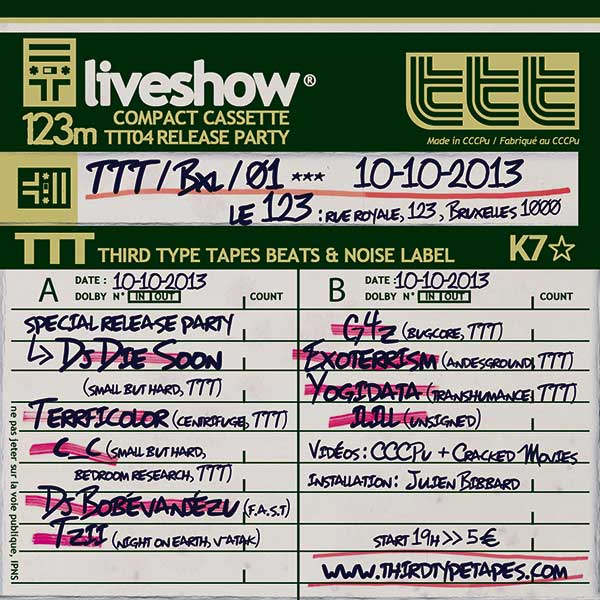 liveshow®
COMPACT CASSETTE
123m TTT04 RELEASE PARTY
ttt
Made in CCCPu / Fabriqué au CCCPu
TTT/BXL/01 *** 10-10-2013
LE 123 : RUE ROYALE, 123, BRUXELLES 1000
TTT THIRD TYPE TAPES BEATS & NOISE LABEL K7☆
A DATE : 10-10-2013
DOLBY N° IN OUT COUNT
SPECIAL RELEASE PARTY
↳ DJ DIE SOON
(SMALL BUT HARD, TTT)
TERRFICOLOR (CENTRIFUGE, TTT)
C_C (SMALL BUT HARD,
BEDROOM RESEARCH, TTT)
DJ BOBÉVANJÉZU (F.A.S.T)
TZII (NIGHT ON EARTH, V-ATAK)
B DATE : 10-10-2013
DOLBY N° IN OUT COUNT
G4Z (BUGCORE, TTT)
EXOTERRISM (ANDESGROUND, TTT)
YOGIDATA (TRANSHUMANCE, TTT)
(UNSIGNED)
VIDÉOS : CCCPU + CRACKED MOVIES
INSTALLATION : JULIEN BIBBARD
START 19H >> 5€
WWW.THIRDTYPETAPES.COM
ne pas jeter sur la voie publique. IPNS